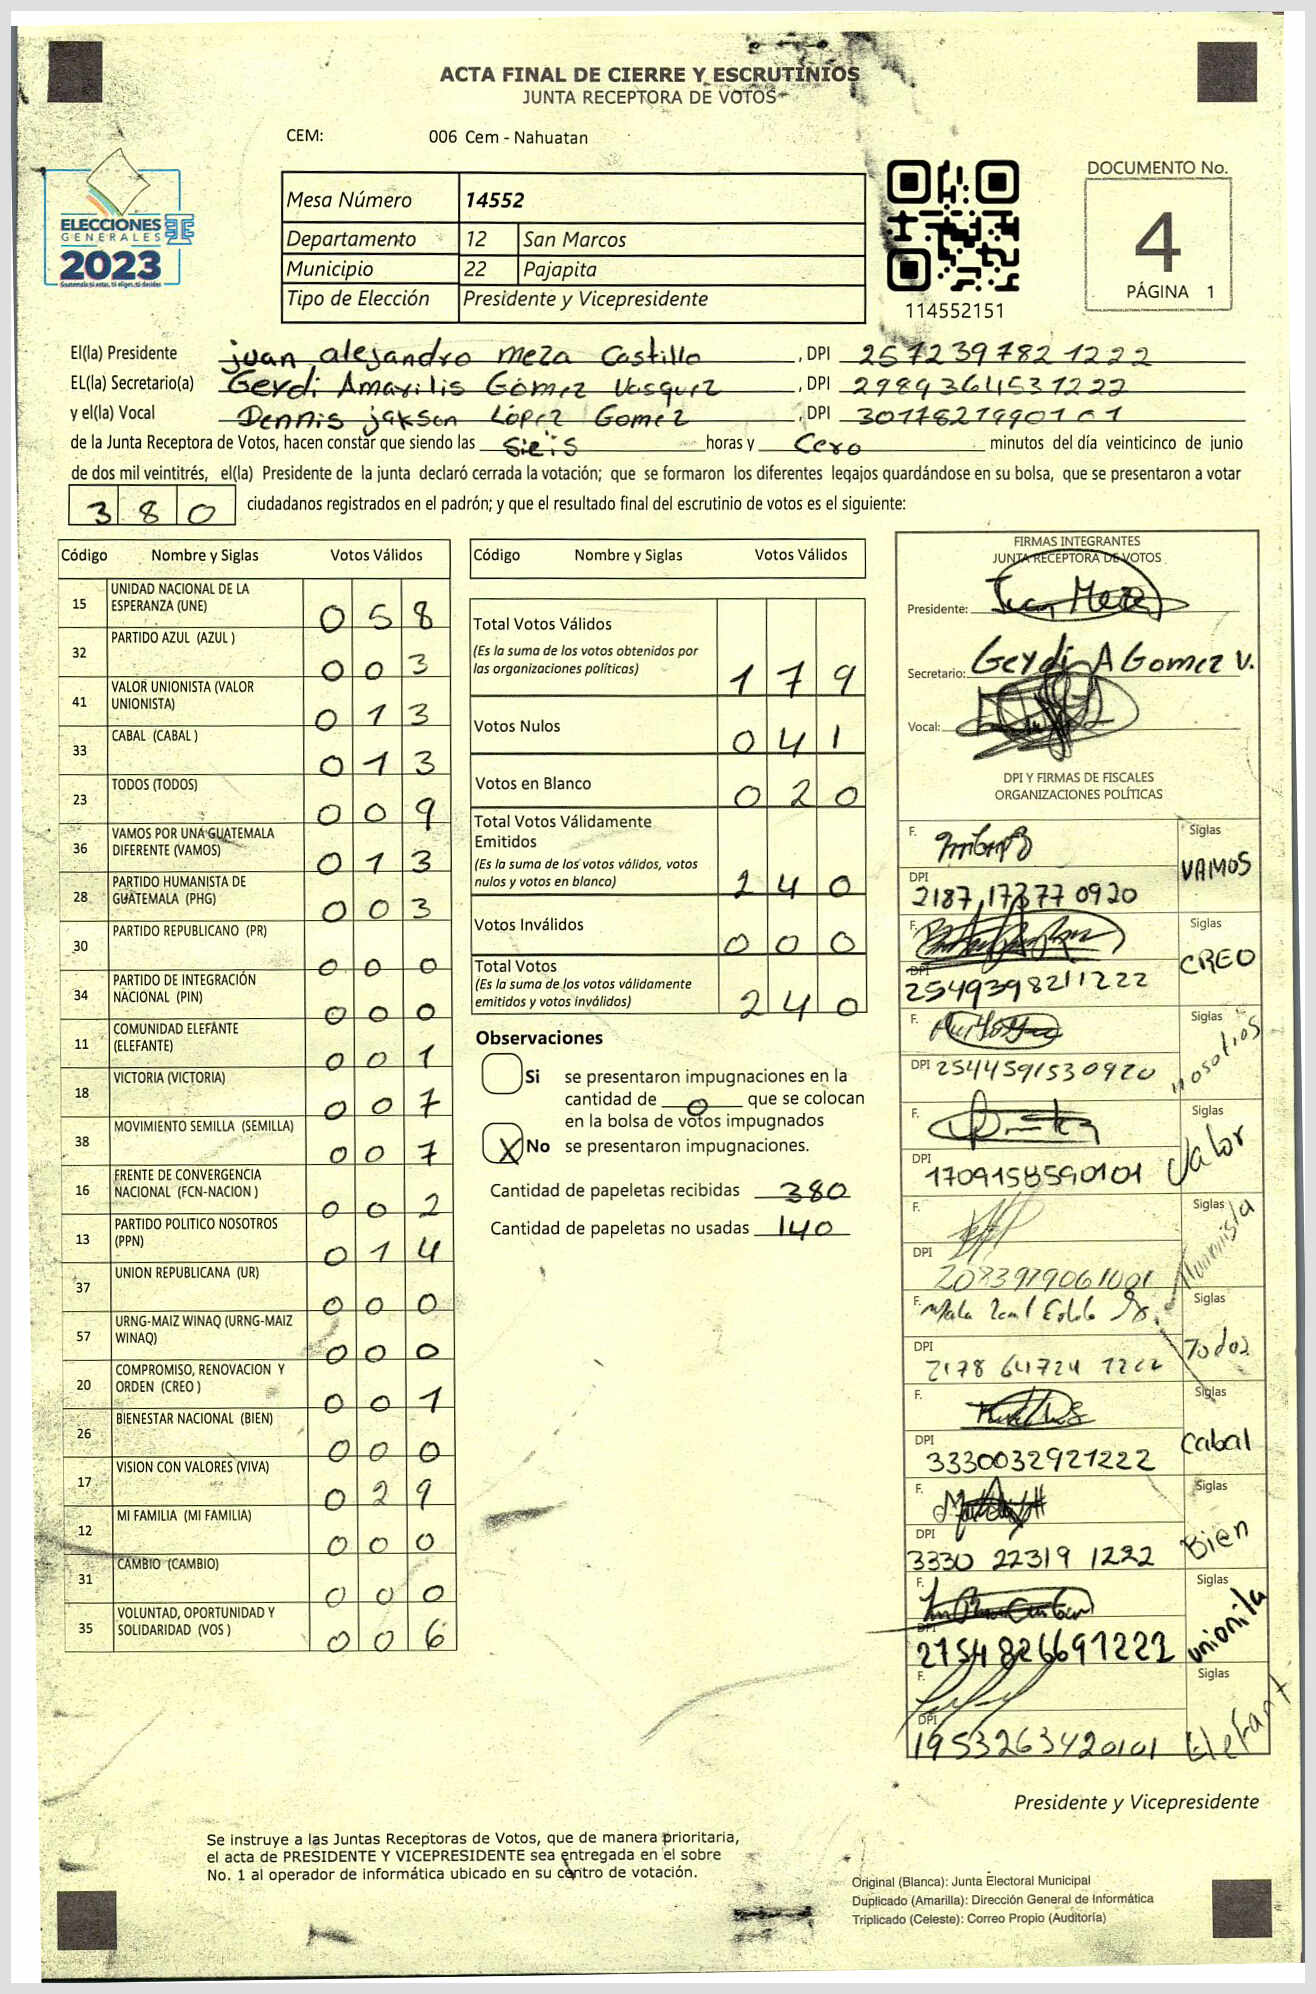 ACTA FINAL DE CIERRE Y ESCRUTINIOS
JUNTA RECEPTORA DE VOTOS
CEM: 006 Cem - Nahuatan
ELECCIONES
GENERALES
2023
Guatemala tú votas, tú eliges, tú decides
Mesa Número 14552
Departamento 12 San Marcos
Municipio 22 Pajapita
Tipo de Elección Presidente y Vicepresidente
114552151
DOCUMENTO No.
4
PÁGINA 1
El(la) Presidente juan alejandro meza Castillo , DPI 2572397821222
EL(la) Secretario(a) Gerdi Amarilis Gómez Vasquez , DPI 2989364531222
y el(la) Vocal Dennis jakson López Gomez , DPI 3017821990101
de la Junta Receptora de Votos, hacen constar que siendo las sieis horas y Cero minutos del día veinticinco de junio
de dos mil veintitrés, el(la) Presidente de la junta declaró cerrada la votación; que se formaron los diferentes legajos guardándose en su bolsa, que se presentaron a votar
380 ciudadanos registrados en el padrón; y que el resultado final del escrutinio de votos es el siguiente:
Código Nombre y Siglas Votos Válidos
15 UNIDAD NACIONAL DE LA ESPERANZA (UNE) 058
32 PARTIDO AZUL (AZUL ) 003
41 VALOR UNIONISTA (VALOR UNIONISTA) 013
33 CABAL (CABAL ) 013
23 TODOS (TODOS) 009
36 VAMOS POR UNA GUATEMALA DIFERENTE (VAMOS) 013
28 PARTIDO HUMANISTA DE GUATEMALA (PHG) 003
30 PARTIDO REPUBLICANO (PR) 000
34 PARTIDO DE INTEGRACIÓN NACIONAL (PIN) 000
11 COMUNIDAD ELEFANTE (ELEFANTE) 001
18 VICTORIA (VICTORIA) 007
38 MOVIMIENTO SEMILLA (SEMILLA) 007
16 FRENTE DE CONVERGENCIA NACIONAL (FCN-NACION ) 002
13 PARTIDO POLITICO NOSOTROS (PPN) 014
37 UNION REPUBLICANA (UR) 000
57 URNG-MAIZ WINAQ (URNG-MAIZ WINAQ) 000
20 COMPROMISO, RENOVACION Y ORDEN (CREO ) 001
26 BIENESTAR NACIONAL (BIEN) 000
17 VISION CON VALORES (VIVA) 029
12 MI FAMILIA (MI FAMILIA) 000
31 CAMBIO (CAMBIO) 000
35 VOLUNTAD, OPORTUNIDAD Y SOLIDARIDAD (VOS ) 006
Código Nombre y Siglas Votos Válidos
Total Votos Válidos 179
(Es la suma de los votos obtenidos por
las organizaciones políticas)
Votos Nulos 041
Votos en Blanco 020
Total Votos Válidamente
Emitidos 240
(Es la suma de los votos válidos, votos
nulos y votos en blanco)
Votos Inválidos 000
Total Votos 240
(Es la suma de los votos válidamente
emitidos y votos inválidos)
Observaciones
Si se presentaron impugnaciones en la
cantidad de 0 que se colocan
en la bolsa de votos impugnados
X No se presentaron impugnaciones.
Cantidad de papeletas recibidas 380
Cantidad de papeletas no usadas 140
FIRMAS INTEGRANTES
JUNTA RECEPTORA DE VOTOS
Presidente: Juan Meza
Secretario: Gerdi A Gomez V.
Vocal:
DPI Y FIRMAS DE FISCALES
ORGANIZACIONES POLÍTICAS
F. Siglas
DPI 2187 17377 0920 VAMOS
F. Siglas
DPI 2549398211222 CREO
F. Siglas
DPI 2544591530920 nosotros
F. Siglas
DPI 1709158590101 Valor
F. Siglas
DPI 2083979061001 Humanista
F. Siglas
DPI 2178 64724 1222 Todos
F. Siglas
DPI 3330032921222 Cabal
F. Siglas
DPI 3330 22319 1222 Bien
F. Siglas
DPI 2754826691222 unionita
F. Siglas
DPI 1953263420101 Elefant
Presidente y Vicepresidente
Se instruye a las Juntas Receptoras de Votos, que de manera prioritaria,
el acta de PRESIDENTE Y VICEPRESIDENTE sea entregada en el sobre
No. 1 al operador de informática ubicado en su centro de votación.
Original (Blanca): Junta Electoral Municipal
Duplicado (Amarilla): Dirección General de Informática
Triplicado (Celeste): Correo Propio (Auditoría)